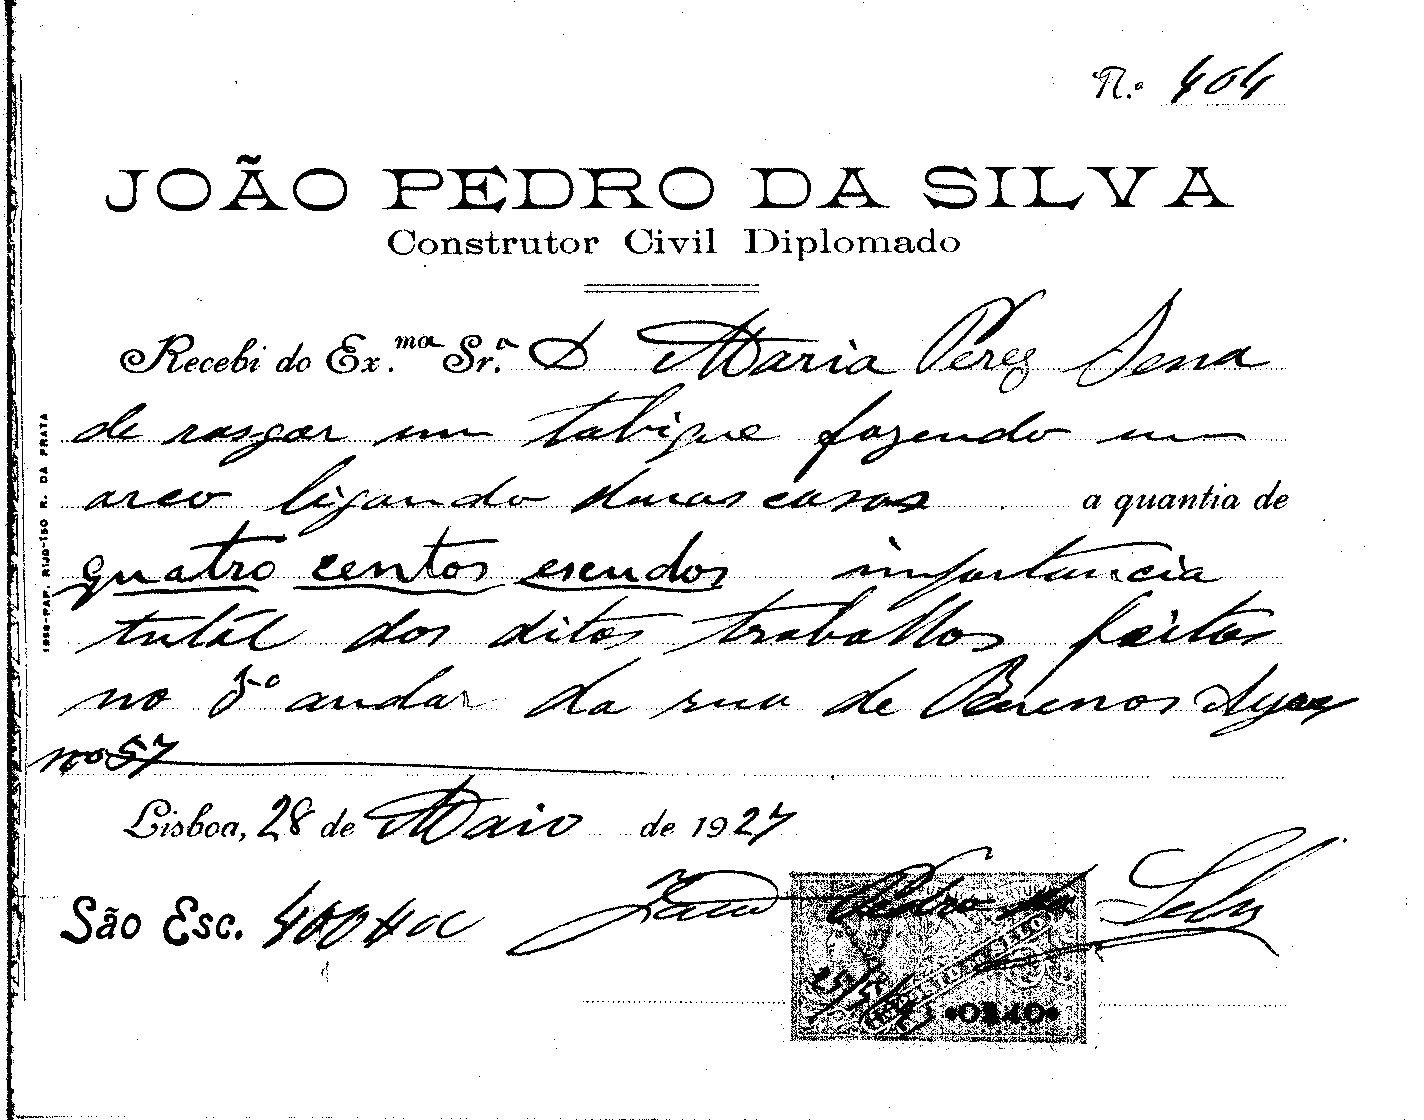 N.º 404
JOÃO PEDRO DA SILVA
Construtor Civil Diplomado
Recebi do Ex.ma Sr.ª D Maria Perez Sena
de rasgar um tabique fazendo um
arco ligando duas casas a quantia de
quatro centos escudos importancia
tutál dos ditos trabalhos feitos
no 5º andar da rua de Buenos Ayres
nº 57
Lisboa, 28 de Maio de 1927
São Esc. 400$00 João Pedro da Silva
•0$40•
PAP. RIJO-150 R. DA PRATA